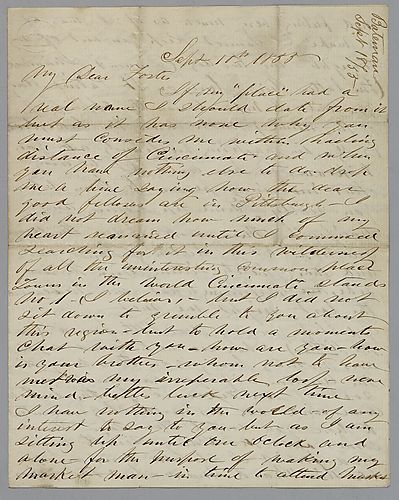 Bateman
Sept 1855
Sept. 10th, 1855
My Dear Foster
If my "place" had a
real name I should date from it
but as it has none why you
must consider me within hailing
distance of Cincinnati and when
you have nothing else to do drop
me a line saying how the dear
good fellows are in Pittsburgh - I
did not dream how much of my
heart remained until I commenced
searching for it in this wilderness
of all the uninteresting common place
towns in the world Cincinnati stands
No. 1 - I believe, - but I did not
sit down to grumble to you about
this region - but to hold a moments
chat with you - how are you - how
is your brother - whom not to have
met was my irreparable loss - never
mind - better luck next time
I have nothing in the world - of any
interest to say to you - but as I am
sitting up until one o'clock and
alone - for the purpose of making my
market man - in time to attend market